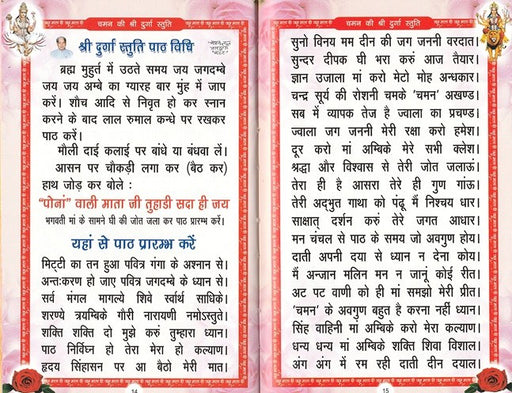 चमन की श्री दुर्गा स्तुति
श्री दुर्गा स्तुति पाठ विधि
ब्रह्म मुहुर्त में उठते समय जय जगदम्बे
जय जय अम्बे का ग्यारह बार मुंह में जाप
करें। शौच आदि से निवृत हो कर स्नान
करने के बाद लाल रुमाल कन्धे पर रखकर
पाठ करें।
मौली दाई कलाई पर बांधे या बंधवा लें।
आसन पर चौकड़ी लगा कर (बैठ कर)
हाथ जोड़ कर बोले :
"पोनां" वाली माता जी तुहाडी सदा ही जय
भगवती मां के सामने घी की जोत जला कर पाठ प्रारम्भ करें।
यहां से पाठ प्रारम्भ करें
मिट्टी का तन हुआ पवित्र गंगा के अश्नान से।
अन्तःकरण हो जाए पवित्र जगदम्बे के ध्यान से।
सर्व मंगल मागल्ये शिवे स्वार्थ साधिके।
शरण्ये त्रयम्बिके गौरी नारायणी नमोऽस्तुते।
शक्ति शक्ति दो मुझे करुं तुम्हारा ध्यान।
पाठ निर्विघ्न हो तेरा मेरा हो कल्याण।
हृदय सिंहासन पर आ बैठो मेरी मात।
14
चमन की श्री दुर्गा स्तुति
सुनो विनय मम दीन की जग जननी वरदात।
सुन्दर दीपक घी भरा करुं आज तैयार।
ज्ञान उजाला मां करो मेटो मोह अन्धकार।
चन्द्र सूर्य की रोशनी चमके 'चमन' अखण्ड।
सब में व्यापक तेज है ज्वाला का प्रचण्ड।
ज्वाला जग जननी मेरी रक्षा करो हमेश।
दूर करो मां अम्बिके मेरे सभी क्लेश।
श्रद्धा और विश्वास से तेरी जोत जलाऊं।
तेरा ही है आसरा तेरे ही गुण गाऊं।
तेरी अद्भुत गाथा को पढूं मैं निश्चय धार।
साक्षात् दर्शन करुं तेरे जगत आधार।
मन चंचल से पाठ के समय जो अवगुण होय।
दाती अपनी दया से ध्यान न देना कोय।
मैं अन्जान मलिन मन न जानूं कोई रीत।
अट पट वाणी को ही मां समझो मेरी प्रीत।
'चमन' के अवगुण बहुत है करना नहीं ध्यान।
सिंह वाहिनी मां अम्बिके करो मेरा कल्याण।
धन्य धन्य मां अम्बिके शक्ति शिवा विशाल।
अंग अंग में रम रही दाती दीन दयाल।
15